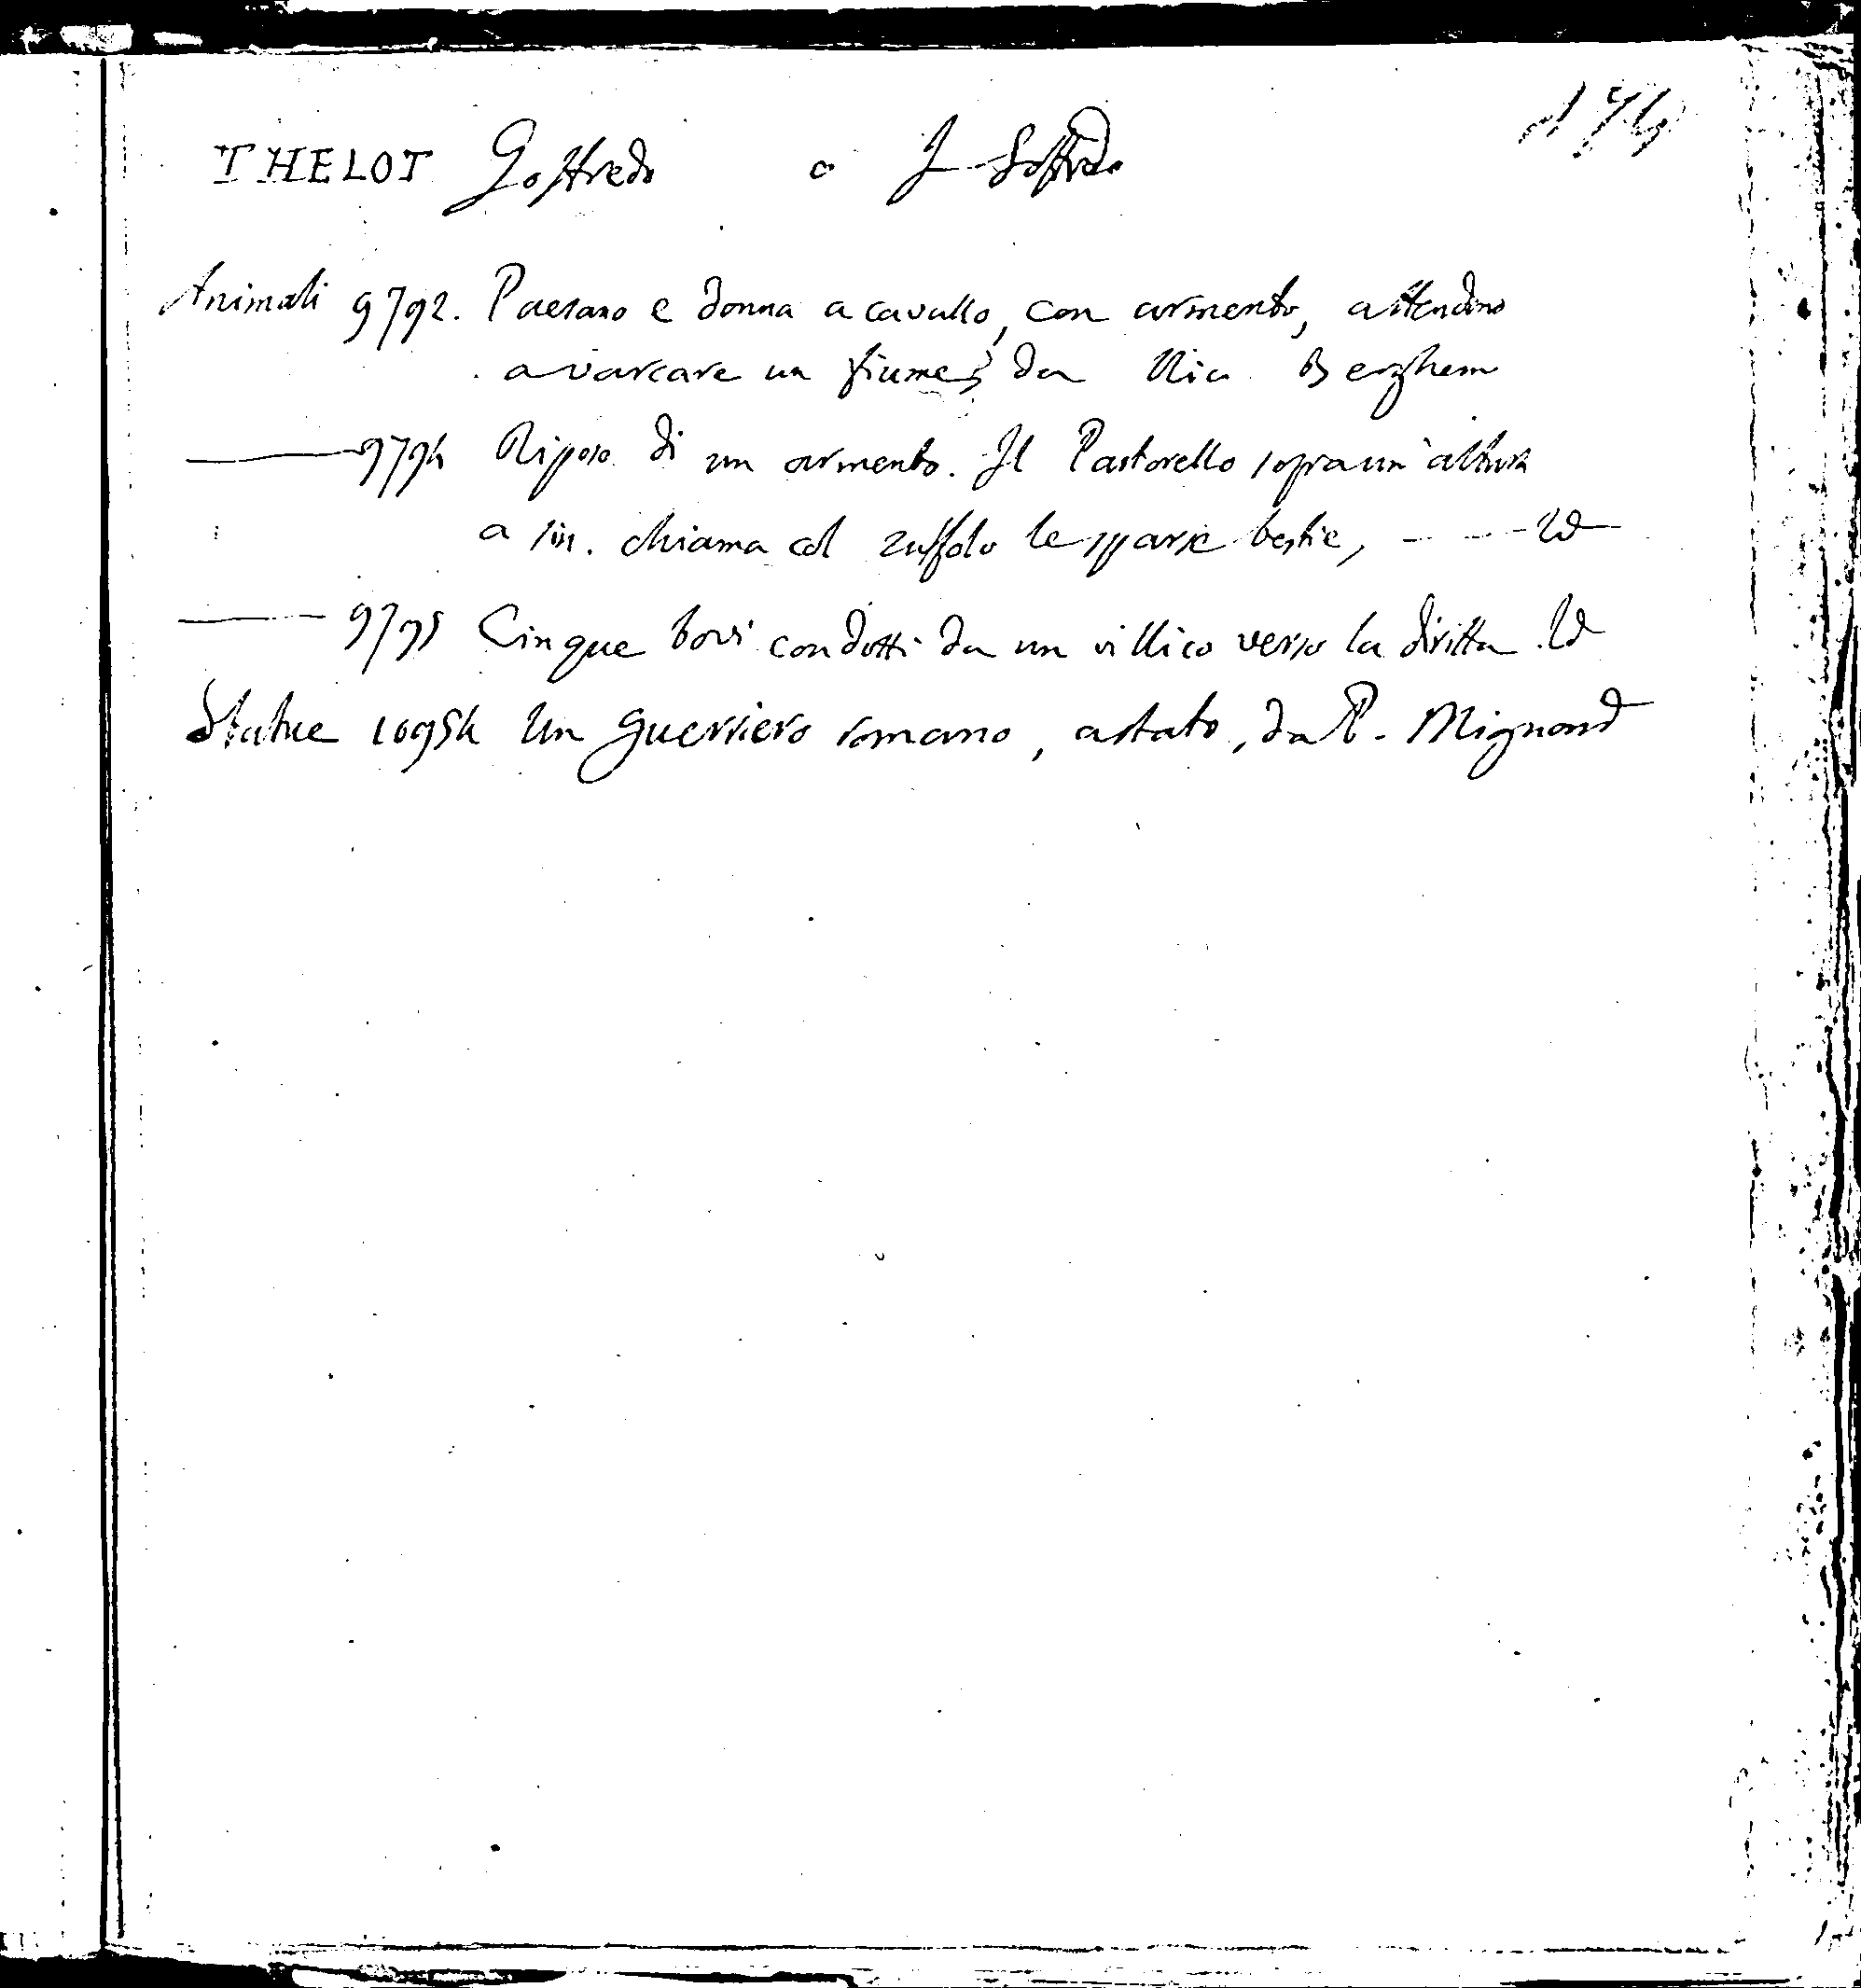 174
THELOT Goffredo o J Goffredo
Animali 9792. Paesano e donna a cavallo, con armento, attendono
a varcare un fiume, da Nic Berghem
9794 Riposo di un armento. Il Pastorello sopra un'altura
a sin. chiama col zuffolo le sparse bestie, Id
9795 Cinque bovi condotti da un villico verso la diritta. Id
Statue 10954 Un guerriero romano, astato, da P. Mignard